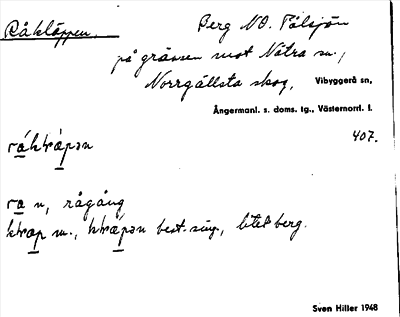 Råkläppen.
Berg NO. Tälsjön
på gränsen mot Nätra sn.,
Norrgällsta skog, Vibyggerå sn,
Ångermanl. s. doms. tg., Västernorrl. l.
407.
ra n, rågång
best. sing., litet berg.
Sven Hiller 1948